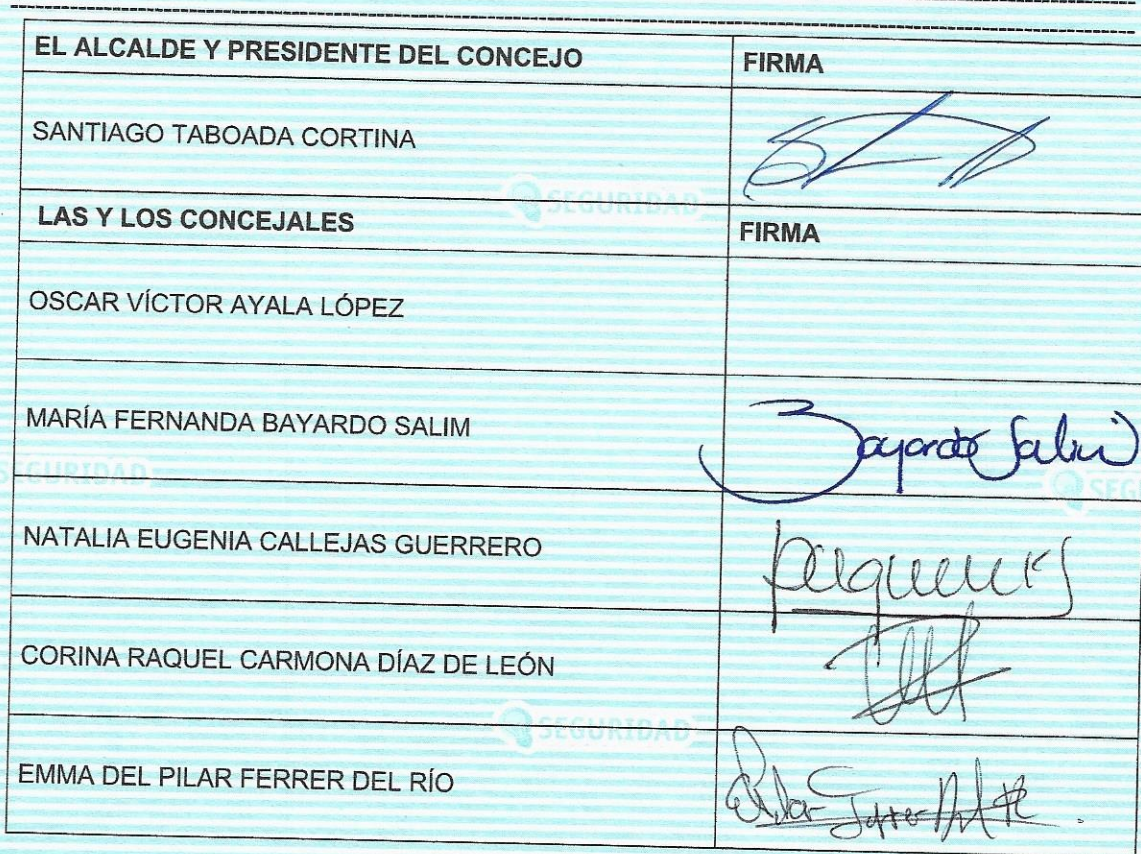 EL ALCALDE Y PRESIDENTE DEL CONCEJO FIRMA
SANTIAGO TABOADA CORTINA
SEGURIDAD
LAS Y LOS CONCEJALES FIRMA
OSCAR VÍCTOR AYALA LÓPEZ
MARÍA FERNANDA BAYARDO SALIM Bayardo Salim
SEGURIDAD
SEG
NATALIA EUGENIA CALLEJAS GUERRERO
CORINA RAQUEL CARMONA DÍAZ DE LEÓN
SEGURIDAD
EMMA DEL PILAR FERRER DEL RÍO Pilar Ferrer